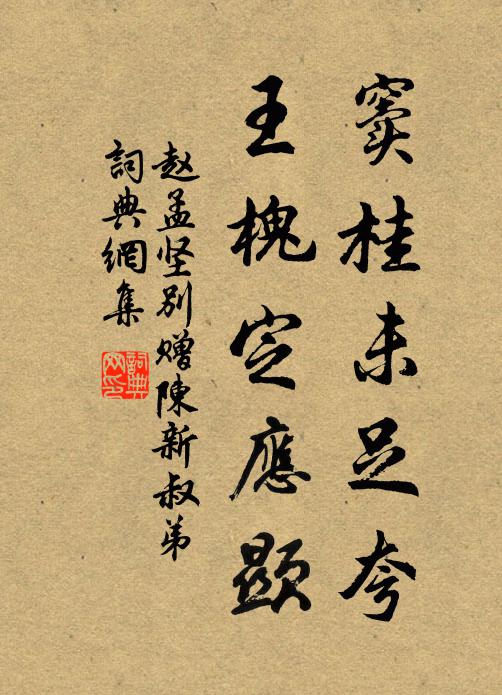 窦桂未足夸
王槐定應顯
赵孟坚别赠陳新叔弟
詞典網集
詞典网印